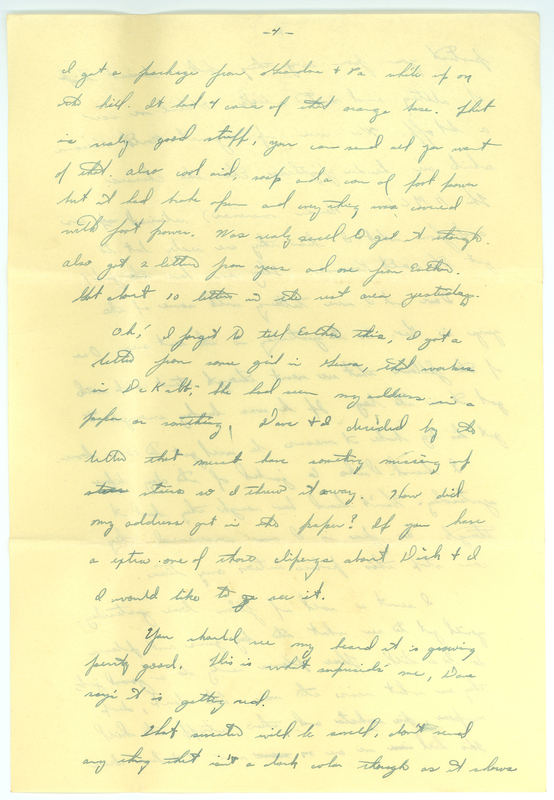 -4-
I got a package from Grandma + Pa while up on
the hill. It had 4 cans of that orange base. That
is realy good stuff, you can send all you want
of that. also cool aid, soap and a can of foot power
but it had broke open and every thing was covered
with foot power. Was realy swell to get it though.
also got 2 letters from yous and one from Esther.
Got about 10 letters in the rest area yesterday.
Oh, I forgot to tell Esther this, I got a
letter from some girl in, that works
in De Kalb, she had seen my address in a
paper or something, Dave + I decided by the
letter that must have somethng missing up
stairs so I threw it away. How did
my address get in the paper? If you have
a extra one of those clipengs about Dick + I
I would like to see it.
You should see my beard it is growing
purity good. This is what suprised me, Dave
says it is getting red.
That sweater will be swell, don't send
any thing that isn't a dark color though as it shows